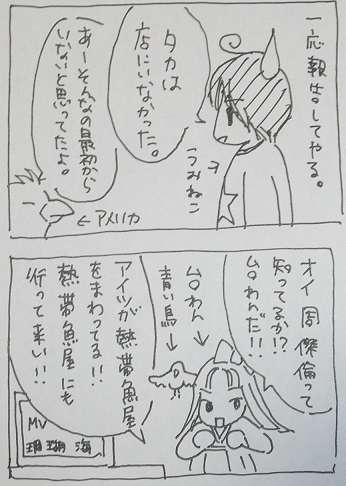 一応報告してやる。
タカは
店にいなかった。
うみねこ
あーそんなの最初から
いないと思ってたよ。
アメリカ
オイ周傑倫って
知ってるか!?
台わんだ!!
台わん
青い鳥
アイツが熱帯魚屋
をまわってる!!
熱帯魚屋にも
行って来い!!
MV
珊瑚海